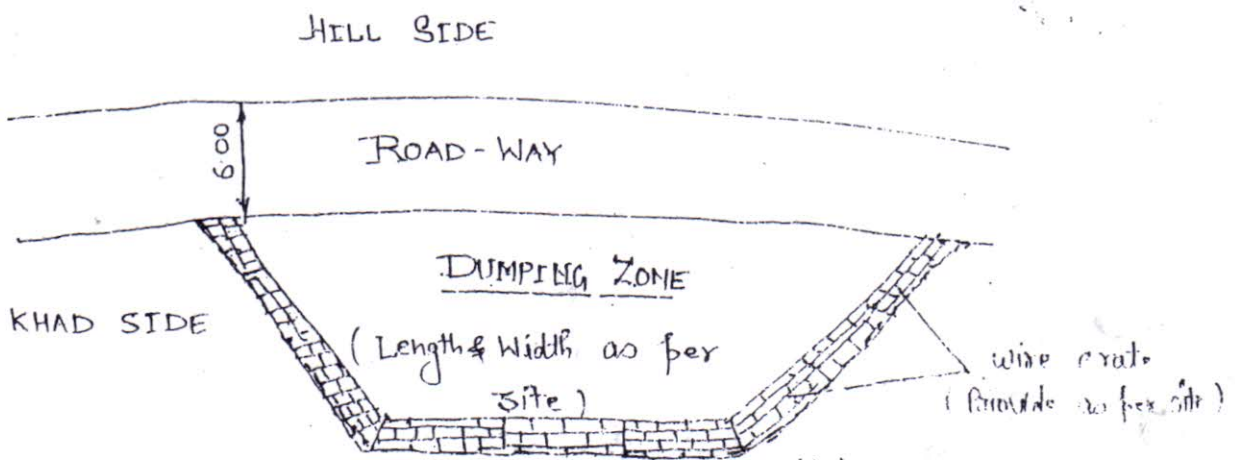 HILL SIDE
6.00
ROAD-WAY
DUMPING ZONE
KHAD SIDE
(Length & Width as per
Site)
wire crate
(Provide as per site)